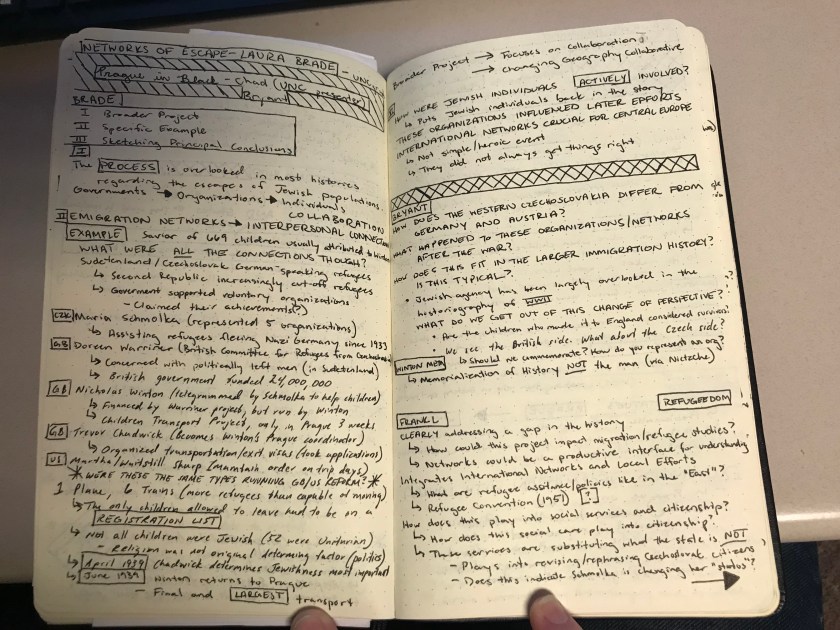 NETWORKS OF ESCAPE - LAURA BRADE - UNC
Prague in Black - Chad (UNC presenter)
Bryant
BRADE
I Broader Project
II Specific Example
III Sketching Principal Conclusions
I
The PROCESS is overlooked in most histories
regarding the escapes of Jewish populations.
Governments → Organizations → Individuals
COLLABORATION
II EMIGRATION NETWORKS → INTERPERSONAL CONNECTIONS
EXAMPLE Savior of 669 children usually attributed to Winton
WHAT WERE ALL THE CONNECTIONS THOUGH?
Sudetenland/Czechoslovak German-speaking refugees
↳ Second Republic increasingly cut-off refugees
↳ Government supported voluntary organizations
- Claimed their achievements?
CZK Maria Schmolka (represented 5 organizations)
↳ Assisting refugees fleeing Nazi Germany since 1933
GB Doreen Warriner (British Committee for Refugees from Czechoslovakia)
↳ Concerned with politically left men (in Sudetenland)
↳ British government funded £4,000,000
GB Nicholas Winton (telegrammed by Schmolka to help children)
↳ Financed by Warriner project, but run by Winton
↳ Children Transport Project, only in Prague 3 weeks
GB Trevor Chadwick (Becomes Winton's Prague coordinator)
↳ Organized transportation/exit visas (took applications)
US Martha/Waitstill Sharp (Maintain order on trip days)
* WERE THESE THE SAME TYPES RUNNING GB/US REFORM? *
1 Plane, 6 Trains (more refugees than capable of moving)
↳ The only children allowed to leave had to be on a
REGISTRATION LIST
↳ Not all children were Jewish (52 were Unitarian)
- Religion was not original determing factor (politics)
↳ April 1939 Chadwick determines Jewishness most important
↳ June 1939 Winton returns to Prague
- Final and LARGEST transport
Broader Project → Focuses on Collaboration
→ Changing Geography Collaborative
HOW WERE JEWISH INDIVIDUALS ACTIVELY INVOLVED?
↳ Puts Jewish individuals back in the story
THESE ORGANIZATIONS INFLUENCED LATER EFFORTS
INTERNATIONAL NETWORKS CRUCIAL FOR CENTRAL EUROPE
↳ Not simple/heroic event
↳ They did not always get things right
BRYANT
HOW DOES THE WESTERN CZECHOSLOVAKIA DIFFER FROM
GERMANY AND AUSTRIA?
WHAT HAPPENED TO THESE ORGANIZATIONS/NETWORKS
AFTER THE WAR?
HOW DOES THIS FIT IN THE LARGER IMMIGRATION HISTORY?
IS THIS TYPICAL?
• Jewish agency has been largely overlooked in the
historiography of WWII
WHAT DO WE GET OUT OF THIS CHANGE OF PERSPECTIVE?
• Are the children who made it to England considered survivors?
• We see the British side. What about the Czech side?
WINTON MEM ↳ Should we commemorate? How do you represent an org?
↳ Memorialization of History NOT the man (via Nietzche)
REFUGEEDOM
FRANKL
CLEARLY addressing a gap in the history
↳ How could this project impact migration/refugee studies?
↳ Networks could be a productive interface for understanding
Integrates International Networks and Local Efforts
↳ What are refugee assitance/policies like in the "East"?
↳ Refugee Convention (1951) ?
How does this play into social services and citizenship?
↳ How does this social care play into citizenship?
↳ These services are substituting what the state is NOT
- Plays into revising/rephrasing Czechoslovak Citizens
- Does this indicate Schmolka is changing her "status"?